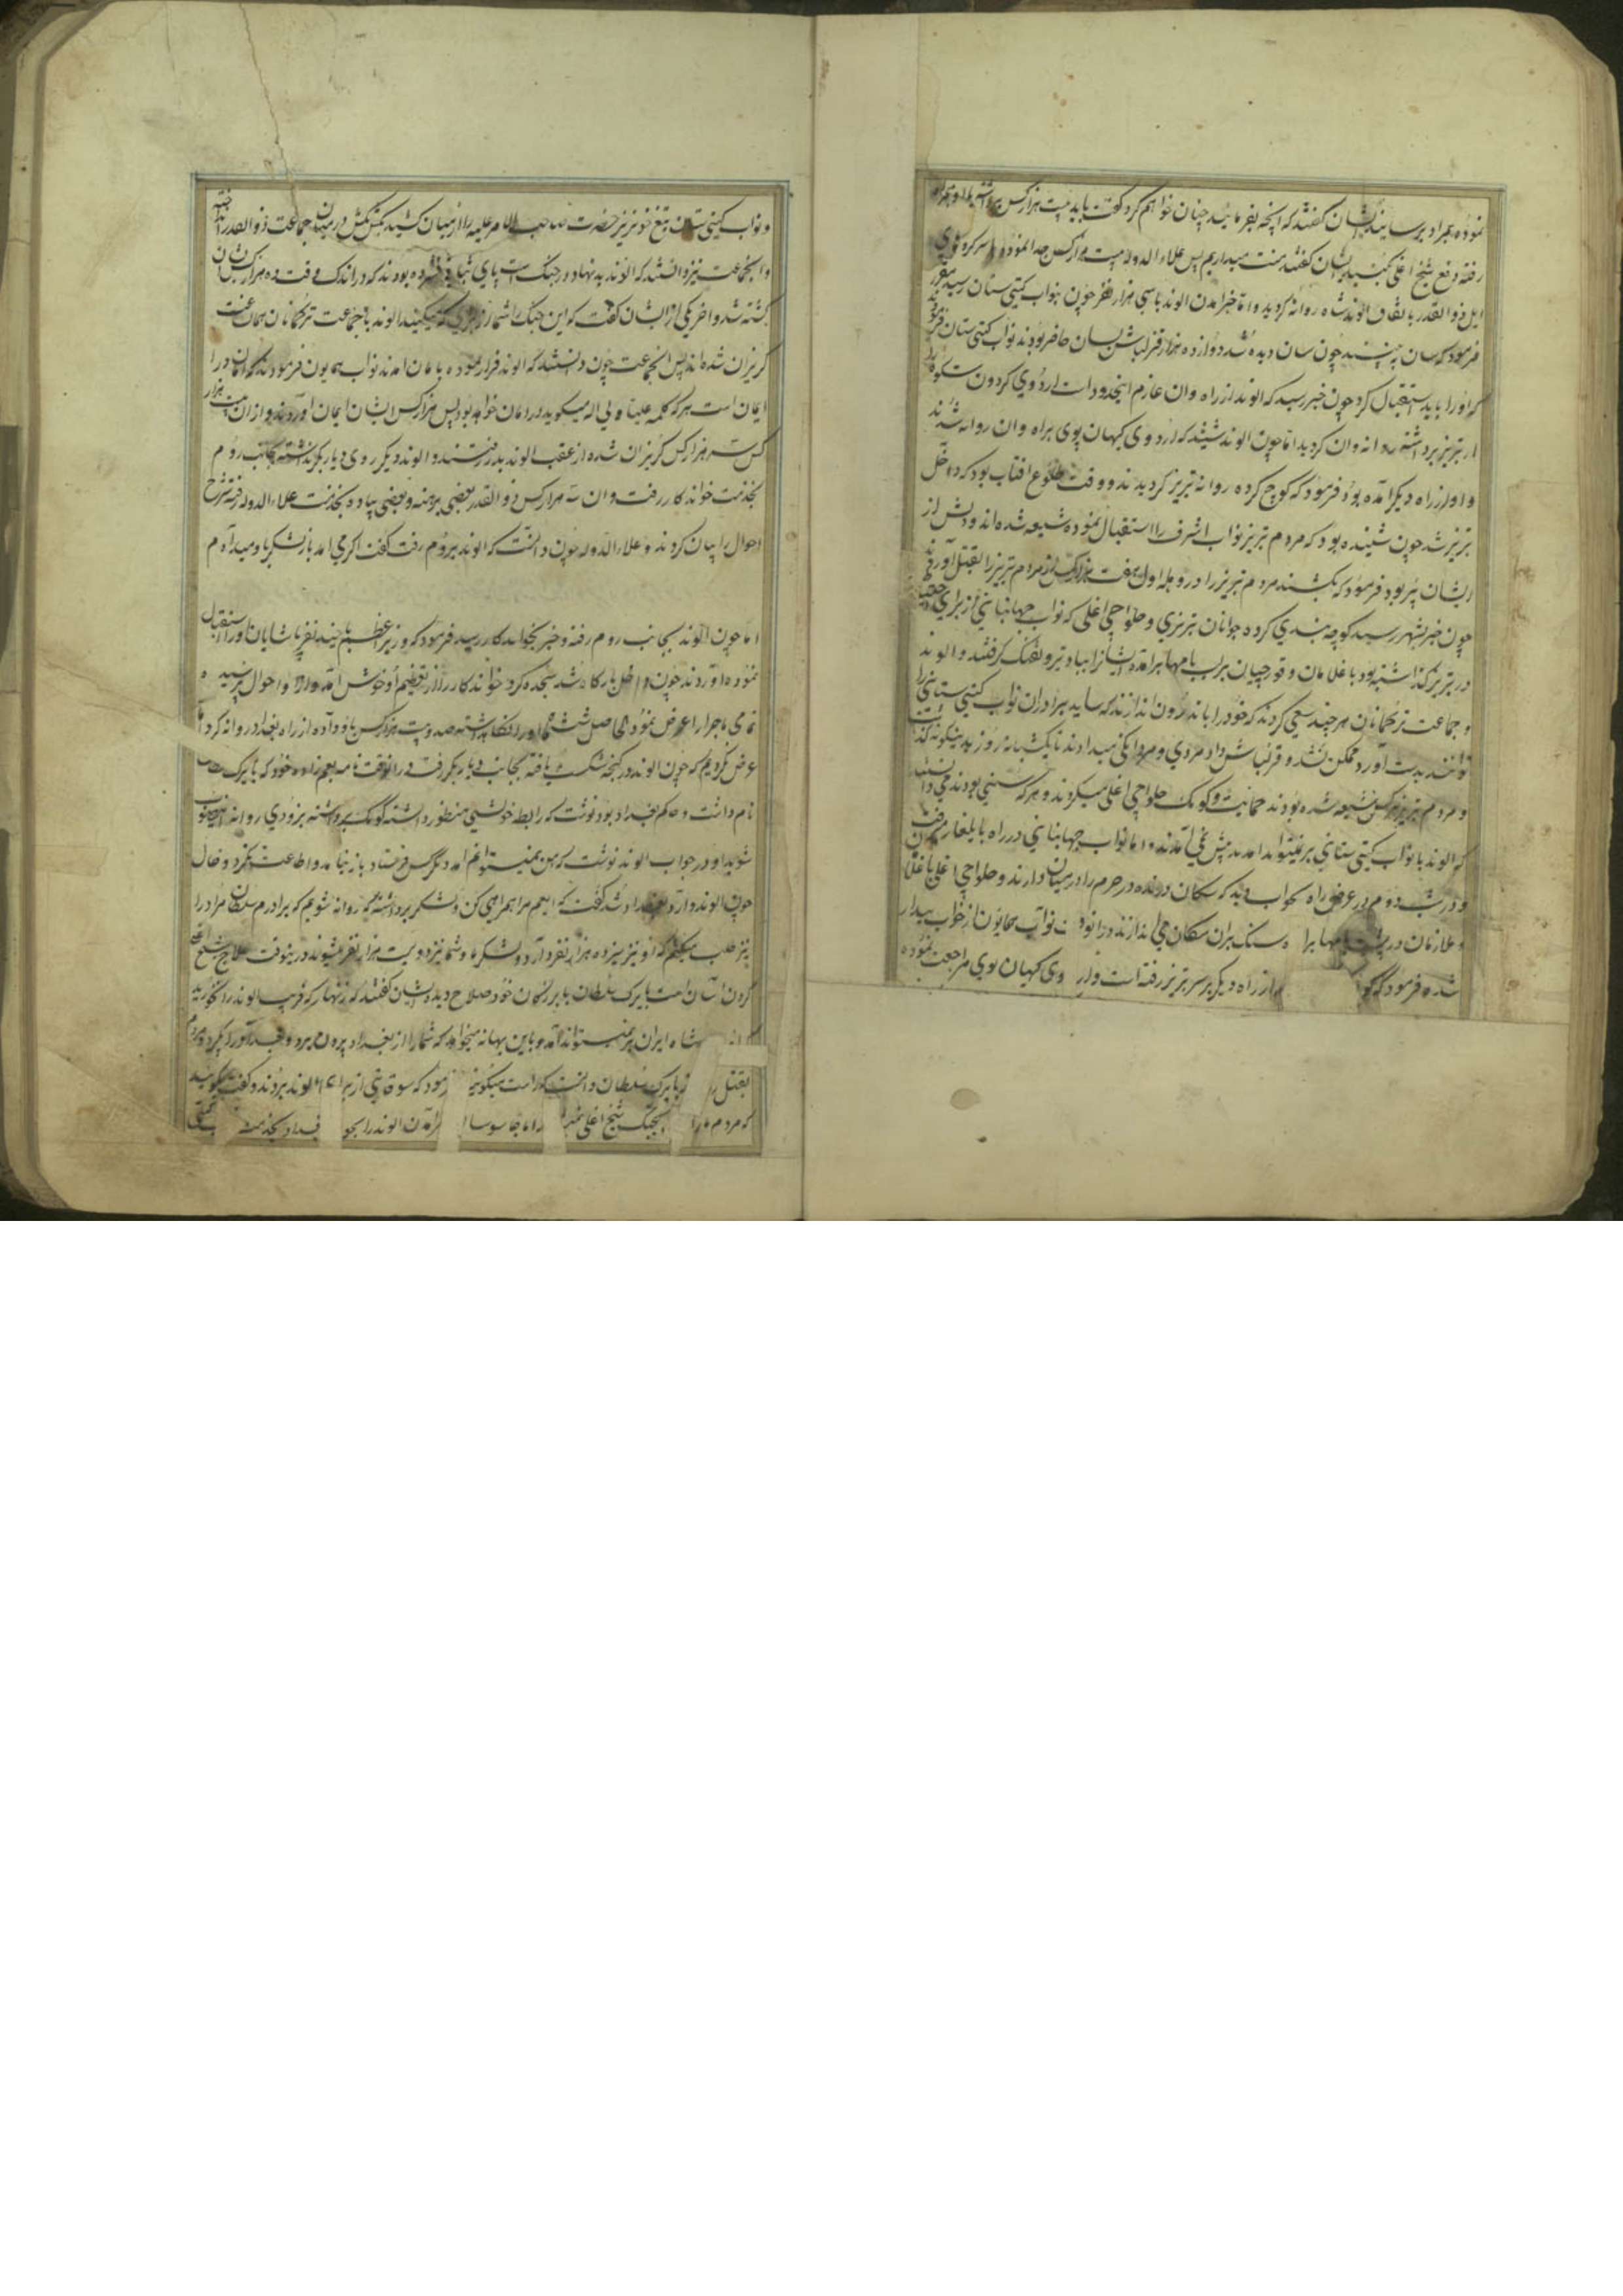 نموده بمراد برسانید ایشان کفتند که انچه بفرمائید چنان خواهم کرد کفت باید بیست هزار کس برداشته
رفته دفع شیخ اغلی بکنید ایشان کفتند منت میداریم پس علاء الدوله بیست هزار کس جدا نموده
ایل ذو القدر باتفاق الوند شاه روانه کردید و اما خبر امدن الوند باسی هزار نفر چون بنواب کیتی ستان رسید
فرمود که سان به بینند چون سان دیده شد دوازده هزار قزلباش بسان حاضر بودند نواب کیتی ستان
که او را باید استقبال کرد چون خبر رسید که الوند از راه وان عازم اینحدود است اردوی کردون شکوه
از تبریز برداشته روانه وان کردید اما چون الوند شنید که اردوی کیهان پوی براه وان روانه شدند
و او از راه دیکر آمده بود فرمود که کوچ کرده روانه تبریز کردیدند و وقت طلوع افتاب بود که داخل
تبریز شد چون شنیده بود که مردم تبریز نواب اشرف را استقبال نموده شیعه شده اند و دلش از
ایشان پر بود فرمود که بکشند مردم تبریز را در وهله اول هفت هزار کس از مردم تبریز را بقتل آوردند
چون خبر بشهر رسید کوچه بندی کرده جوانان تبریزی و حلواچی اغلی که نواب جهانبانی از برای
در تبریز کذاشته بود با غلامان و قورچیان برلب بامها برامده ایشانرا بباد تیر و تفنک کرفتند و الوند
و جماعت ترکمانان هر چند سعی کردند که خود را باندرون اندازند که شاید برادران نواب کیتی ستانی را
توانند بدست آورد ممکن نشد و قزلباش داد مردی و مردانکی میدادند تا یکشبانه روز بدینکونه
و مردم تبریز هر کس شیعه شده بودند حمایت و کومک حلواچی اغلی میکردند و هر که سنی بودند
که الوند با نواب کیتی ستانی بر نمیتواند آمد پیش نمی آمدند و اما نواب جهانبانی در راه بایلغار
و در شب دوم در عرض راه بخواب دید که سکان درنده در حرم را در میان دارند و حلواچی اغلی با
و ملازمان در پشت بامها سنک بران سکان می اندازند نواب همایون از خواب بیدار
شده فرمود که از راه دیکر بر سر تبریز رفته است وی کیهان پوی مراجعت نموده
و نواب کیتی ستان تیغ خونریز حضرت صاحب الامر علیه را از میان کشید بکش بکش در میان جماعت ذو القدر
و انجماعت نیز دانستند که الوند بدنهاد در جنک است پای ثبات فشرده بودند که در اندک وقت ده هزار کس ایشان
کشته شد و اخر یکی از ایشان کفت که این جنک شما از برای که میکنید الوند با جماعت ترکمانان همان ساعت
کریزان شده اند پس انجماعت چون دانستند که الوند فرار نموده بامان امدند نواب همایون فرمودند که
ایمان است هر که کلمه علیا ولی اله میکوید در امان خواهد بود پس هزار کس ایشان ایمان آوردند و از ان بیست هزار
کس سه هزار کس کریزان شده از عقب الوند بدر رفتند و الوند دیکر روی دیار بکر نداشته بجانب روم
بخدمت خواندکار رفت و ان سه هزار کس ذو القدر بعضی برهنه و بعضی پیاده بخدمت علاء الدوله رفته شرح
احوال را بیان کردند و علاء الدوله چون دانست که الوند بروم رفت کفت اکر می امد باز لشکر باو میدادم
اما چون الوند بجانب روم رفته و خبر بخواندکار رسید فرمود که وزیر اعظم با چند نفر پاشایان او را استقبال
نموده آوردند چون داخل بارکاه شد سجده کرد خواندکار از تعظیم او خوش آمد و احوال پرسیده
تمامی ماجرا را عرض نمود الحاصل شش ماه او را نکاهداشته صد و بیست هزار کس باو داده از راه بغداد روانه کرد اما
عرض کردیم که چون الوند در کنجه شکست یافته بجانب دیار بکر رفت در انوقت نامه بعم زاده خود که بایرک
نام داشت و حاکم بغداد بود نوشت که رابطه خویشی منظور داشته کومک برداشته بزودی روانه اینصوب
شوید او در جواب الوند نوشت که من نمیتوانم امد دیکر کس فرستاد باز نیامد و اطاعت نکرد و حال
چون الوند وارد بغداد شد کفت که ایعم مرا همراهی کن و لشکر برداشته که روانه شویم که برادرم سلطان مراد را
نیز طلب میکنم که او نیز سیزده هزار نفر دارد و لشکر ما و شما نیز دویست هزار نفر میشوند درینوقت علاج شیخ
کردن اسان است بایرک سلطان با بزرکان خود صلاح دید ایشان کفتند که زنهار که فریب الوند را نخورید
شاه ایران بر نمیتواند آمد و باین بهانه میخواهد که شما را از بغداد بیرون برد و بغداد را بکیرد و مردم
بقتل بایرک سلطان دانست که راست میکویند فرمود که سوقاتی از برای الوند بردند و کفت بکوئید
که مردم ما را بجنک شیخ اغلی آمدن الوند را بخدمت